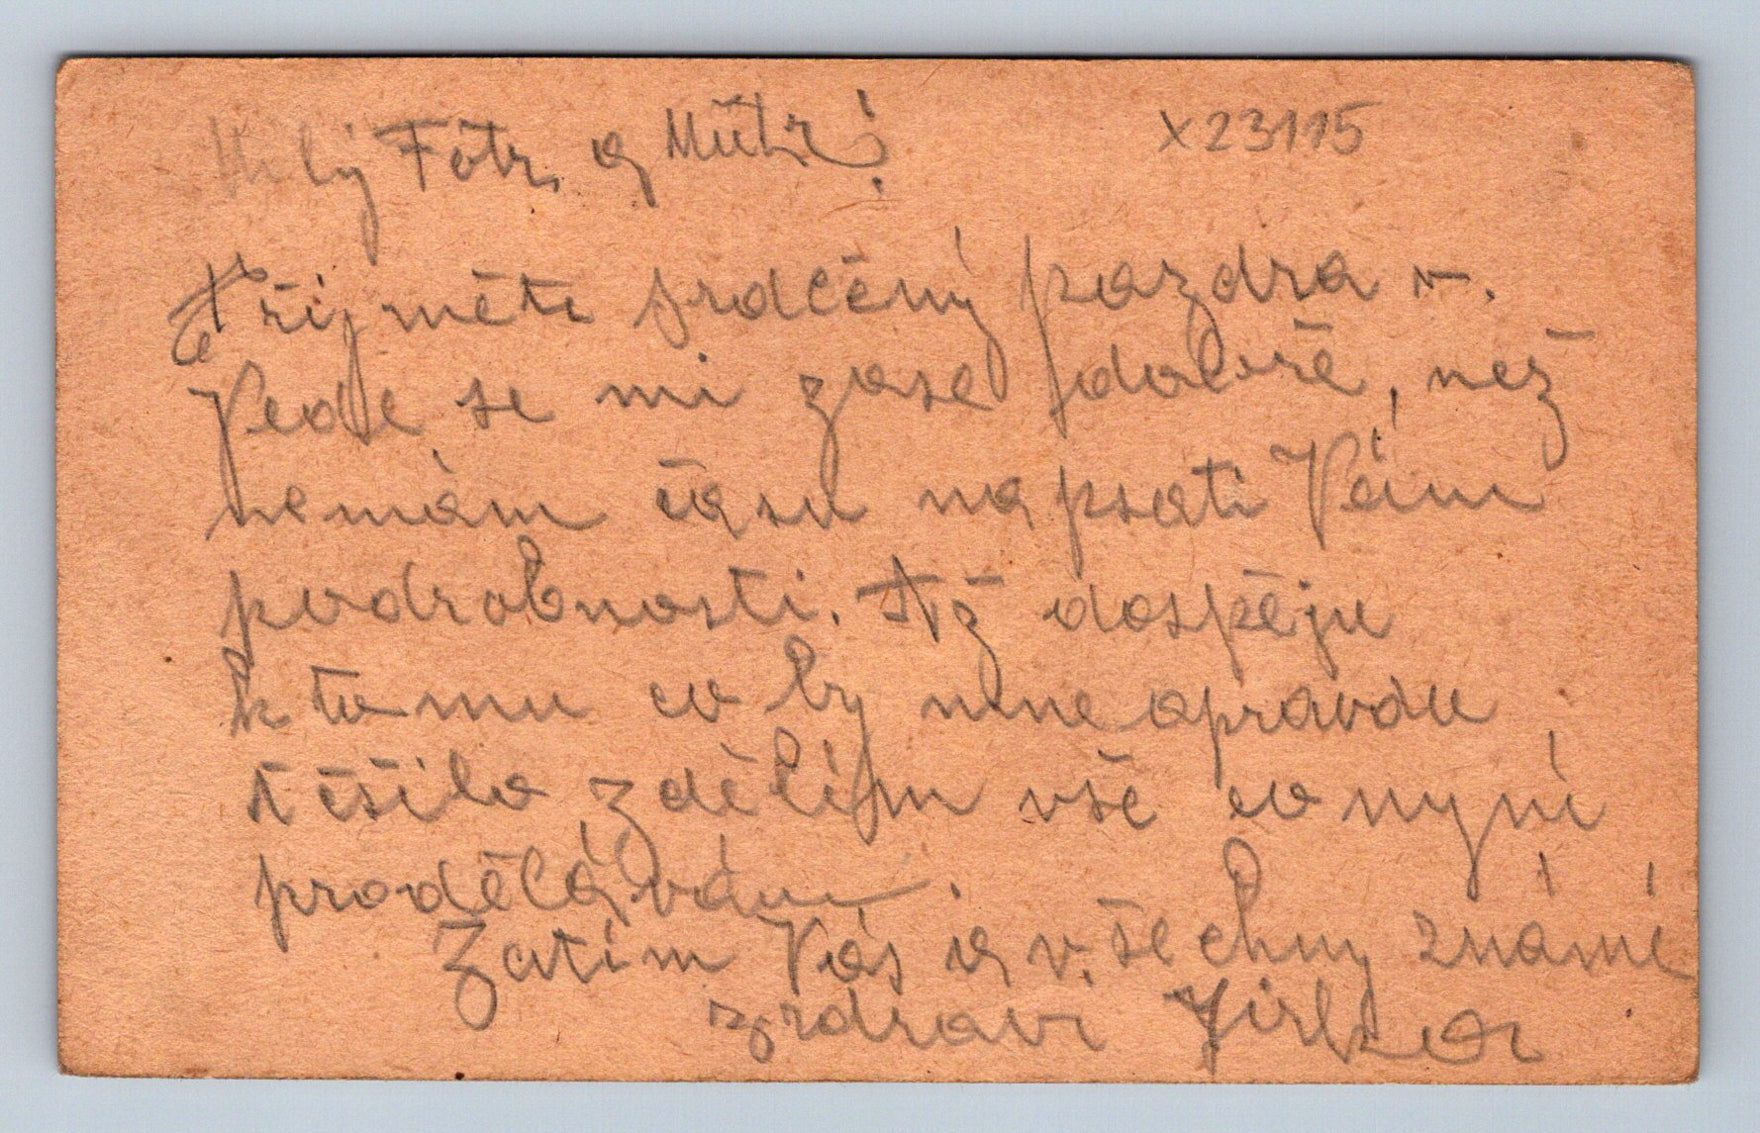 Milý Fótr a Mütr!
X23115
Přijměte srdčěný pozdra v.
Vede se mi zase dobrě, než
nemám času napsati Vám
podrobnosti. Až dospěju
k tomu co by mne opravdu
těšilo zdělím vše co nyní
prodělávám.
Zatím Vás a všechny známé
zdraví Jirka